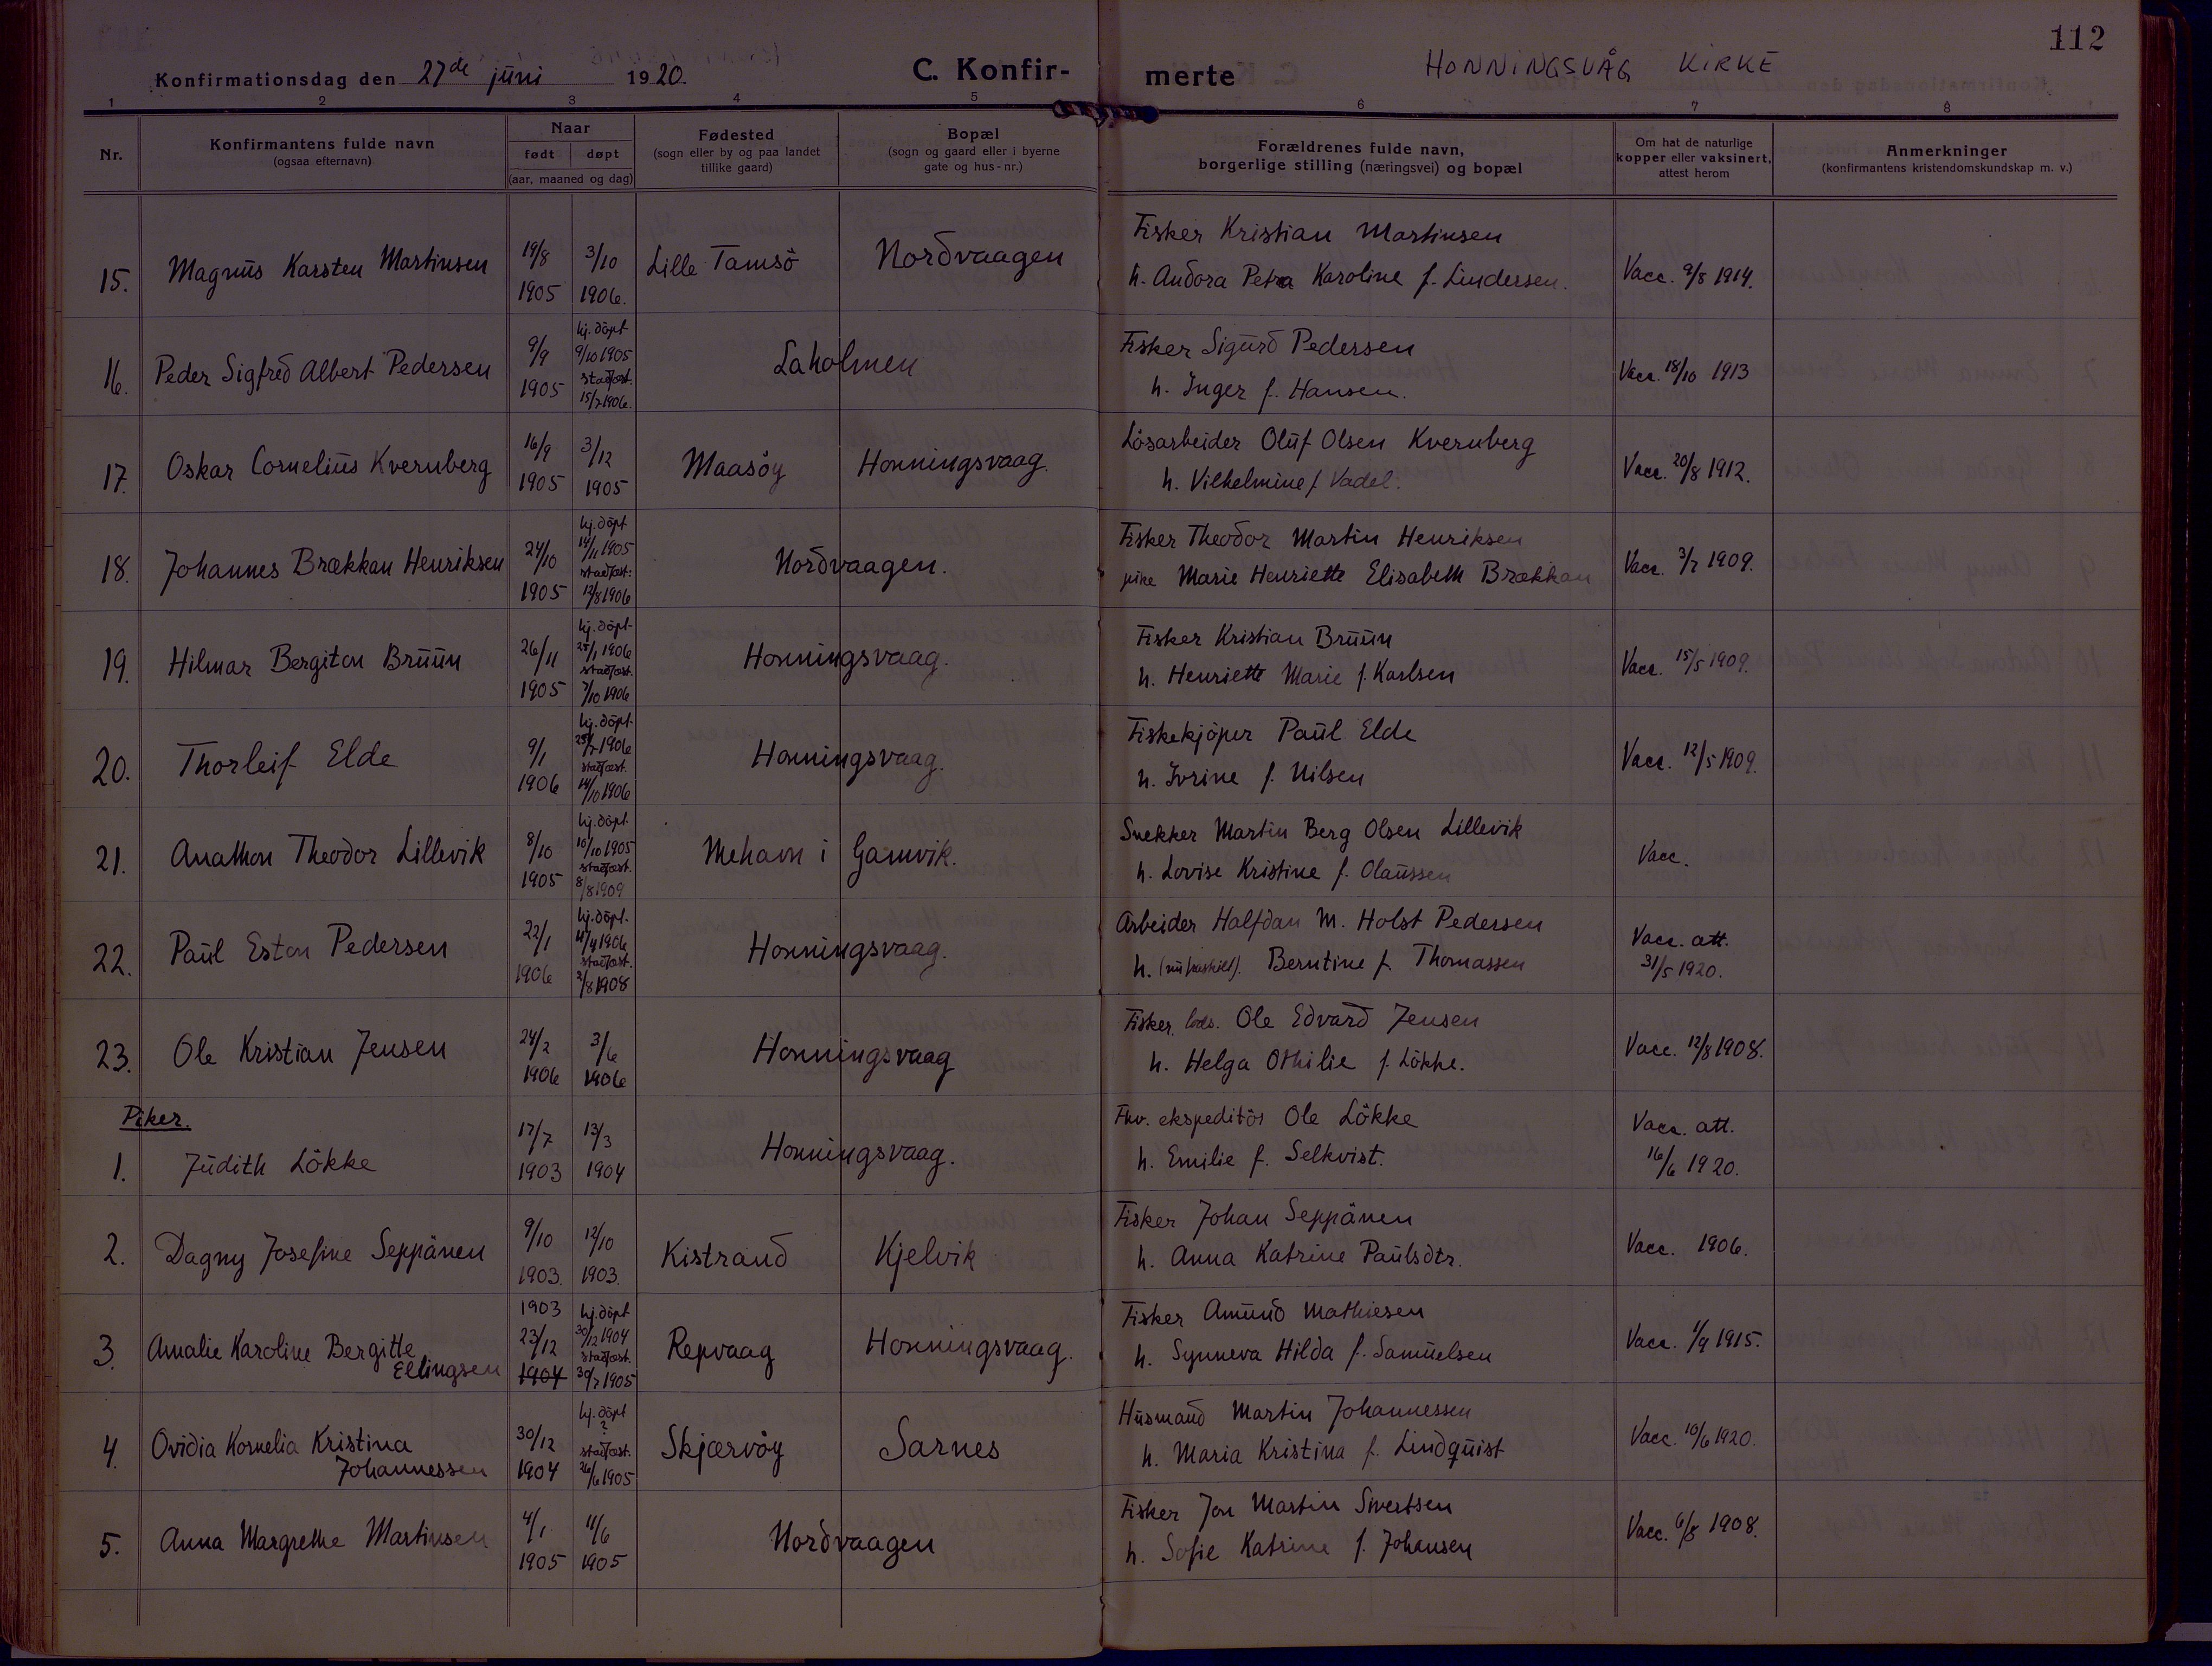 112
Konfirmationsdag den 27de juni 1920. C. Konfirmerte HONNINGSVÅG KIRKE
1 2 3 4 5 6 7 8
Nr.
Konfirmantens fulde navn
(ogsaa efternavn)
Naar
født døpt
(aar, maaned og dag)
Fødested
(sogn eller by og paa landet
tillike gaard)
Bopæl
(sogn og gaard eller i byerne
gate og hus-nr.)
Forældrenes fulde navn,
borgerlige stilling (næringsvei) og bopæl
Om hat de naturlige
kopper eller vaksinert,
attest herom
Anmerkninger
(konfirmantens kristendomskundskap m. v.)
15. Magnus Karsten Martinsen
19/8 1905
3/10 1906.
Lille Tamsö
Nordvaagen
Fisker Kristian Martinsen
h. Andora Petra Karoline f. Lindersen.
Vacc. 9/8 1914.
16. Peder Sigfred Albert Pedersen
9/9 1905
hj. döpt
9/10 1905
stadfæst.
15/7 1906.
Laholmen
Fisker Sigurd Pedersen
h. Inger f. Hansen.
Vacc. 18/10 1913
17. Oskar Cornelius Kvernberg
16/9 1905
3/12 1905
Maasöy
Honningsvaag.
Lösarbeider Oluf Olsen Kvernberg
h. Vilhelmine f. Vadel.
Vacc. 20/8 1912.
18. Johannes Brækkan Henriksen
24/10 1905
hj. döpt
14/11 1905
stadfæst:
12/8 1906
Nordvaagen.
Fisker Theodor Martin Henriksen
pike Marie Henriette Elisabeth Brækkan
Vacc. 3/7 1909.
19. Hilmar Bergiton Bruun
26/11 1905
hj. döpt
25/1 1906
stadfæst.
7/10 1906
Honningsvaag.
Fisker Kristian Bruun
h. Henriette Marie f. Karlsen
Vacc. 15/5 1909.
20. Thorleif Elde
9/1 1906
hj. döpt.
25/2 1906
stadfæst.
14/10 1906
Honningsvaag.
Fiskekjöper Paul Elde
h. Ivrine f. Nilsen
Vacc. 12/5 1909.
21. Anathon Theodor Lillevik
8/10 1905
hj. döpt.
10/10 1905
stadfæst.
8/8 1909
Mehavn i Gamvik.
Snekker Martin Berg Olsen Lillevik
h. Lovise Kristine f. Olaussen
Vacc.
22. Paul Eston Pedersen
22/1 1906
hj. döpt.
/4 1906
stadfæst.
2/8 1908
Honningsvaag.
Arbeider Halfdan M. Holst Pedersen
h. (nu fraskilt). Berntine f. Thomassen
Vacc. att.
31/5 1920.
23. Ole Kristian Jensen
24/2 1906
3/6 1906
Honningsvaag
Fisker. lods. Ole Edvard Jensen
h. Helga Othilie f. Lökke.
Vacc. 12/8 1908.
Piker.
1. Judith Lökke
17/7 1903
13/3 1904
Honningsvaag.
Fhv. ekspeditör Ole Lökke
h. Emilie f. Selkvist.
Vacc. att.
16/6 1920.
2. Dagny Josefine Seppänen
9/10 1903.
12/10 1903.
Kistrand
Kjelvik
Fisker Johan Seppänen
h. Anna Katrine Paulsdtr.
Vacc. 1906.
3. Amalie Karoline Bergitte
Ellingsen
1903
23/12
1904
hj. döpt
30/12 1904
stadfæst.
30/7 1905
Repvaag
Honningsvaag.
Fisker Amund Mathiesen
h. Synneva Hilda f. Samuelsen
Vacc. 1/9 1915.
4. Ovidia Kornelia Kristina
Johannessen
30/12 1904
hj. döpt
?
stadfæst.
26/6 1905
Skjærvöy
Sarnes
Husmand Martin Johannessen
h. Maria Kristina f. Lindquist
Vacc. 10/6 1920.
5. Anna Margrethe Martinsen
4/1 1905
11/6 1905
Nordvaagen
Fisker Jon Martin Sivertsen
h. Sofie Katrine f. Johansen
Vacc. 6/8 1908.